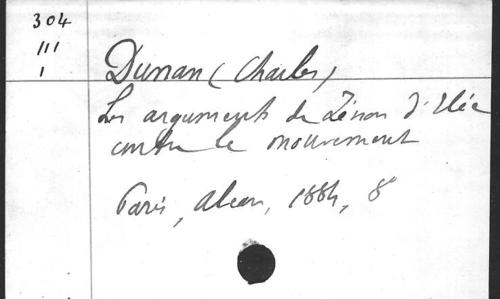 304
III
1
Dunan (Charles)
Les arguments de Zénon d'Elée
contre le mouvement
Paris, Alcan, 1884, 8°